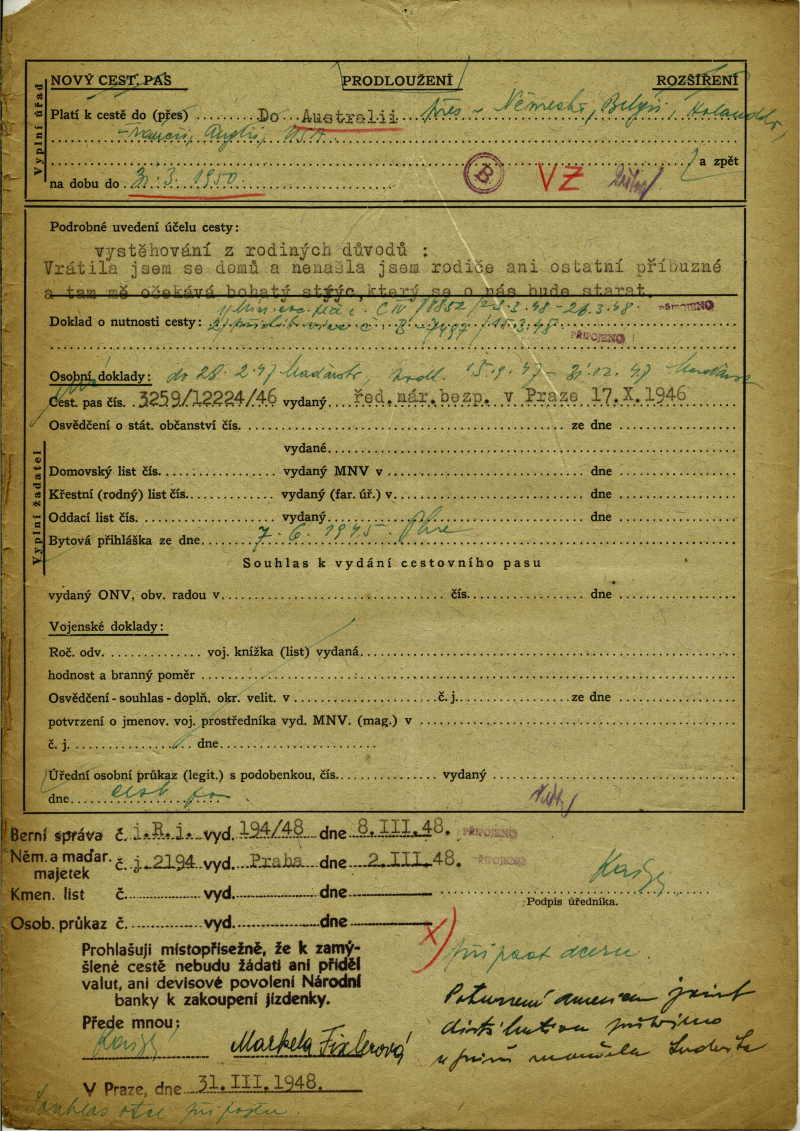 NOVÝ CEST. PAS PRODLOUŽENÍ ROZŠÍŘENÍ
Vyplní úřad
Platí k cestě do (přes) Do Australii přes - Německo, Belgii, Holandsko,
Anglii, USA
a zpět
na dobu do 31.3.1950. VZ
Podrobné uvedení účelu cesty:
vystěhování z rodiných důvodů :
Vrátila jsem se domů a nenašla jsem rodiče ani ostatní příbuzné
a tam mě očekává bohatý strýc, který se o nás bude starat.
PŘIPOJENO
Doklad o nutnosti cesty:
PŘIPOJENO
Osobní doklady: do 28.2.47 15.9.47 - 31.12.47
Cest. pas čís. 3259/12224/46 vydaný řed.nár.bezp. v Praze 17.X.1946
Osvědčení o stát. občanství čís. ze dne
vydané
Vyplní žadatel
Domovský list čís. vydaný MNV v dne
Křestní (rodný) list čís. vydaný (far. úř.) v dne
Oddací list čís. vydaný dne
Bytová přihláška ze dne 7.6.1945
Souhlas k vydání cestovního pasu
vydaný ONV, obv. radou v čís. dne
Vojenské doklady:
Roč. odv. voj. knížka (list) vydaná
hodnost a branný poměr
Osvědčení - souhlas - doplň. okr. velit. v č. j. ze dne
potvrzení o jmenov. voj. prostředníka vyd. MNV. (mag.) v
č. j. dne
Úřední osobní průkaz (legit.) s podobenkou, čís. vydaný
dne
Berní správa č. j.R.j. vyd. 194/48 dne 8.III.48. PŘIPOJENO
Něm. a maďar. majetek č. j.2194 vyd. Praha dne 2.III.48. PŘIPOJENO
Kmen. list č. vyd. dne
Podpis úředníka.
Osob. průkaz č. vyd. dne
Prohlašuji místopřísežně, že k zamý-
šlené cestě nebudu žádati ani příděl
valut, ani devisové povolení Národní
banky k zakoupení jízdenky.
Přede mnou:
Marketa Fixlerová
V Praze, dne 31.III.1948.
Souhlas otce při pasu.